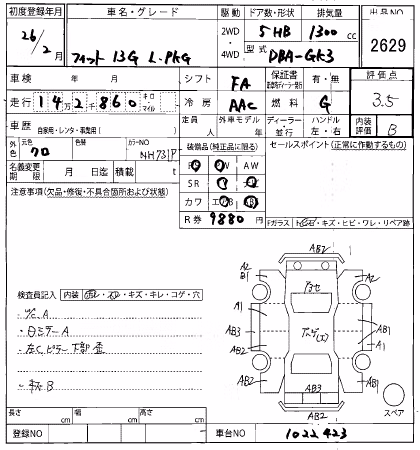 初度登録年月
車名・グレード
駆動
ドア数・形状
排気量
出品NO
26/2月
フィット 13G L-PKG
2WD
4WD
5HB
1300cc
型式
DBA-GK3
2629
車検 年 月
シフト
FA
保証書
有・無
評価点
走行 14万2千860キロ マイル
冷房
AAC
燃料
G
3.5
車歴
自家用・レンタ・事業用( )
定員 人
外車モデル 年
ディーラー・並行
ハンドル 左・右
内装評価
B
外色
元色
クロ
色替
カラーNO
NH731P
装備品(純正品に限る)
セールスポイント(正常に作動するもの)
名義変更期限 月 日迄
積載 t
PS PW AW
SR
カワ
注意事項(欠品・修復・不具合箇所および状態)
R券 9880円
Fガラス トビ石・キズ・ヒビ・ワレ・リペア跡
検査員記入
内装
・キズ・キレ・コゲ・穴
A
ミラーA
左Cピラー下部歪
B
AB2
A2
B1
A2
A1
AB3
AB2
AB1
A1
AB2
AB1
AB3
AB2
スペア
長さ cm
幅 cm
高さ cm
登録NO
車台NO
1022423